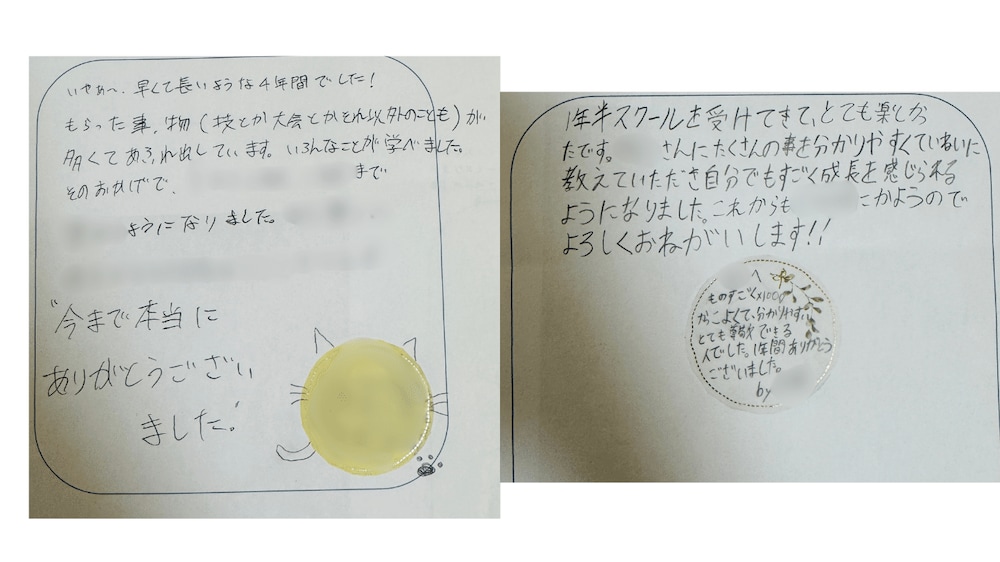 いやぁ〜、早くて長いような4年間でした！
もらった事、物（技とか大会とかそれ以外のことも）が
多くてあふれ出しています。いろんなことが学べました。
そのおかげで、
まで
ようになりました。
“今まで本当に
ありがとうござい
ました”
1年半スクールを受けてきて、とても楽しか
たです。 さんにたくさんの事を分かりやすくていねいに
教えていただき自分でもすごく成長を感じられる
ようになりました。これからも にかようので
よろしくおねがいします!!
へ
ものすごく×1000
かっこよくて、分かりやすい
とても尊敬できる
人でした。1年間ありがとう
ございました。
by